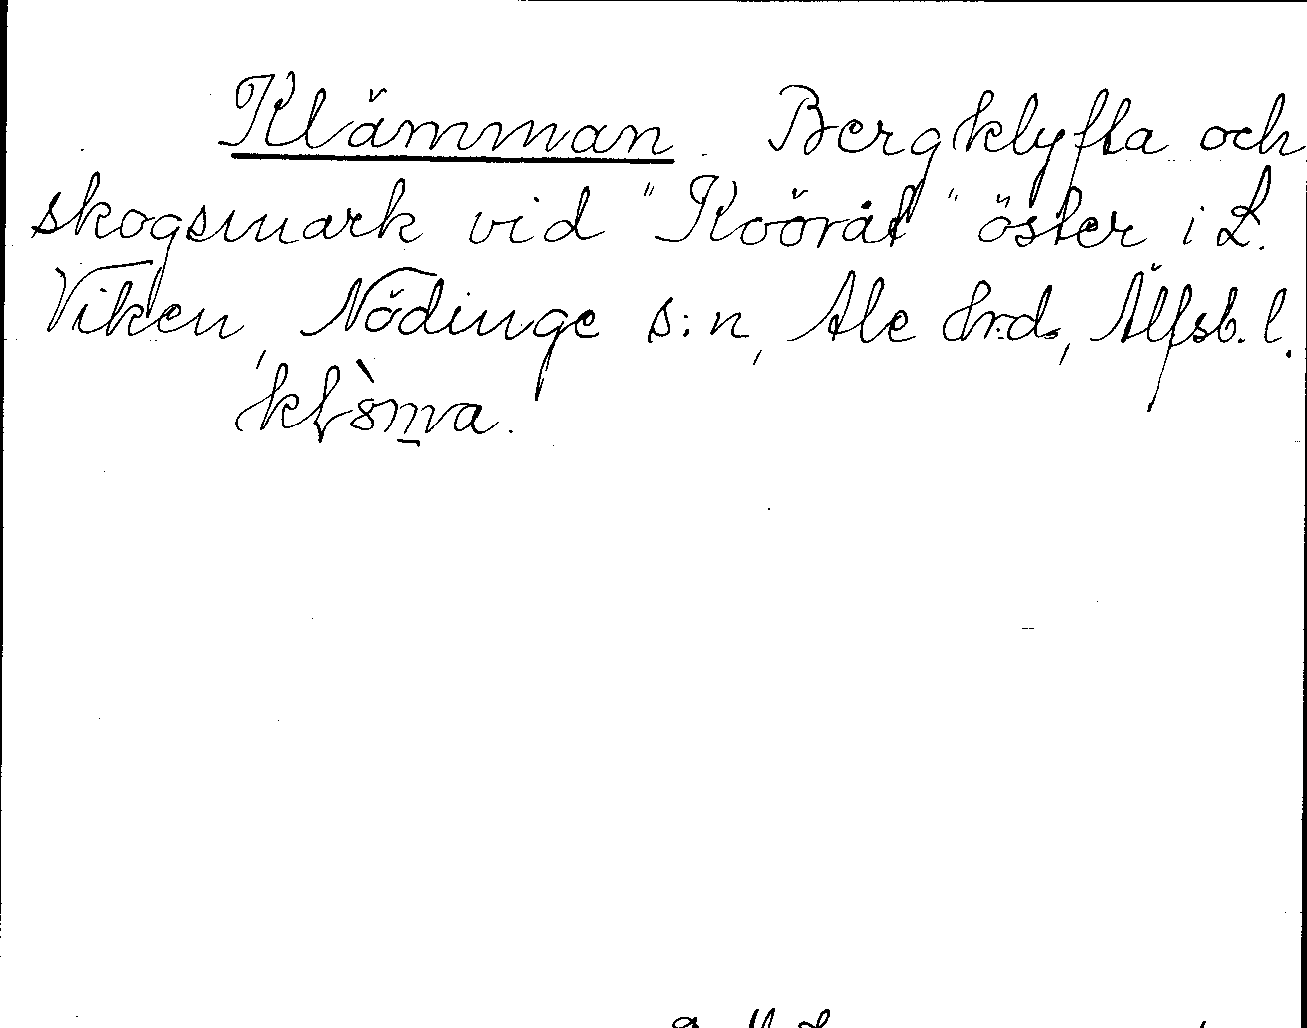 Klämman. Bergklyfta och
skogsmark vid "Koöråt" öster i L.
Viken, Nödinge s:n, Ale hrd., Älfsb. l.